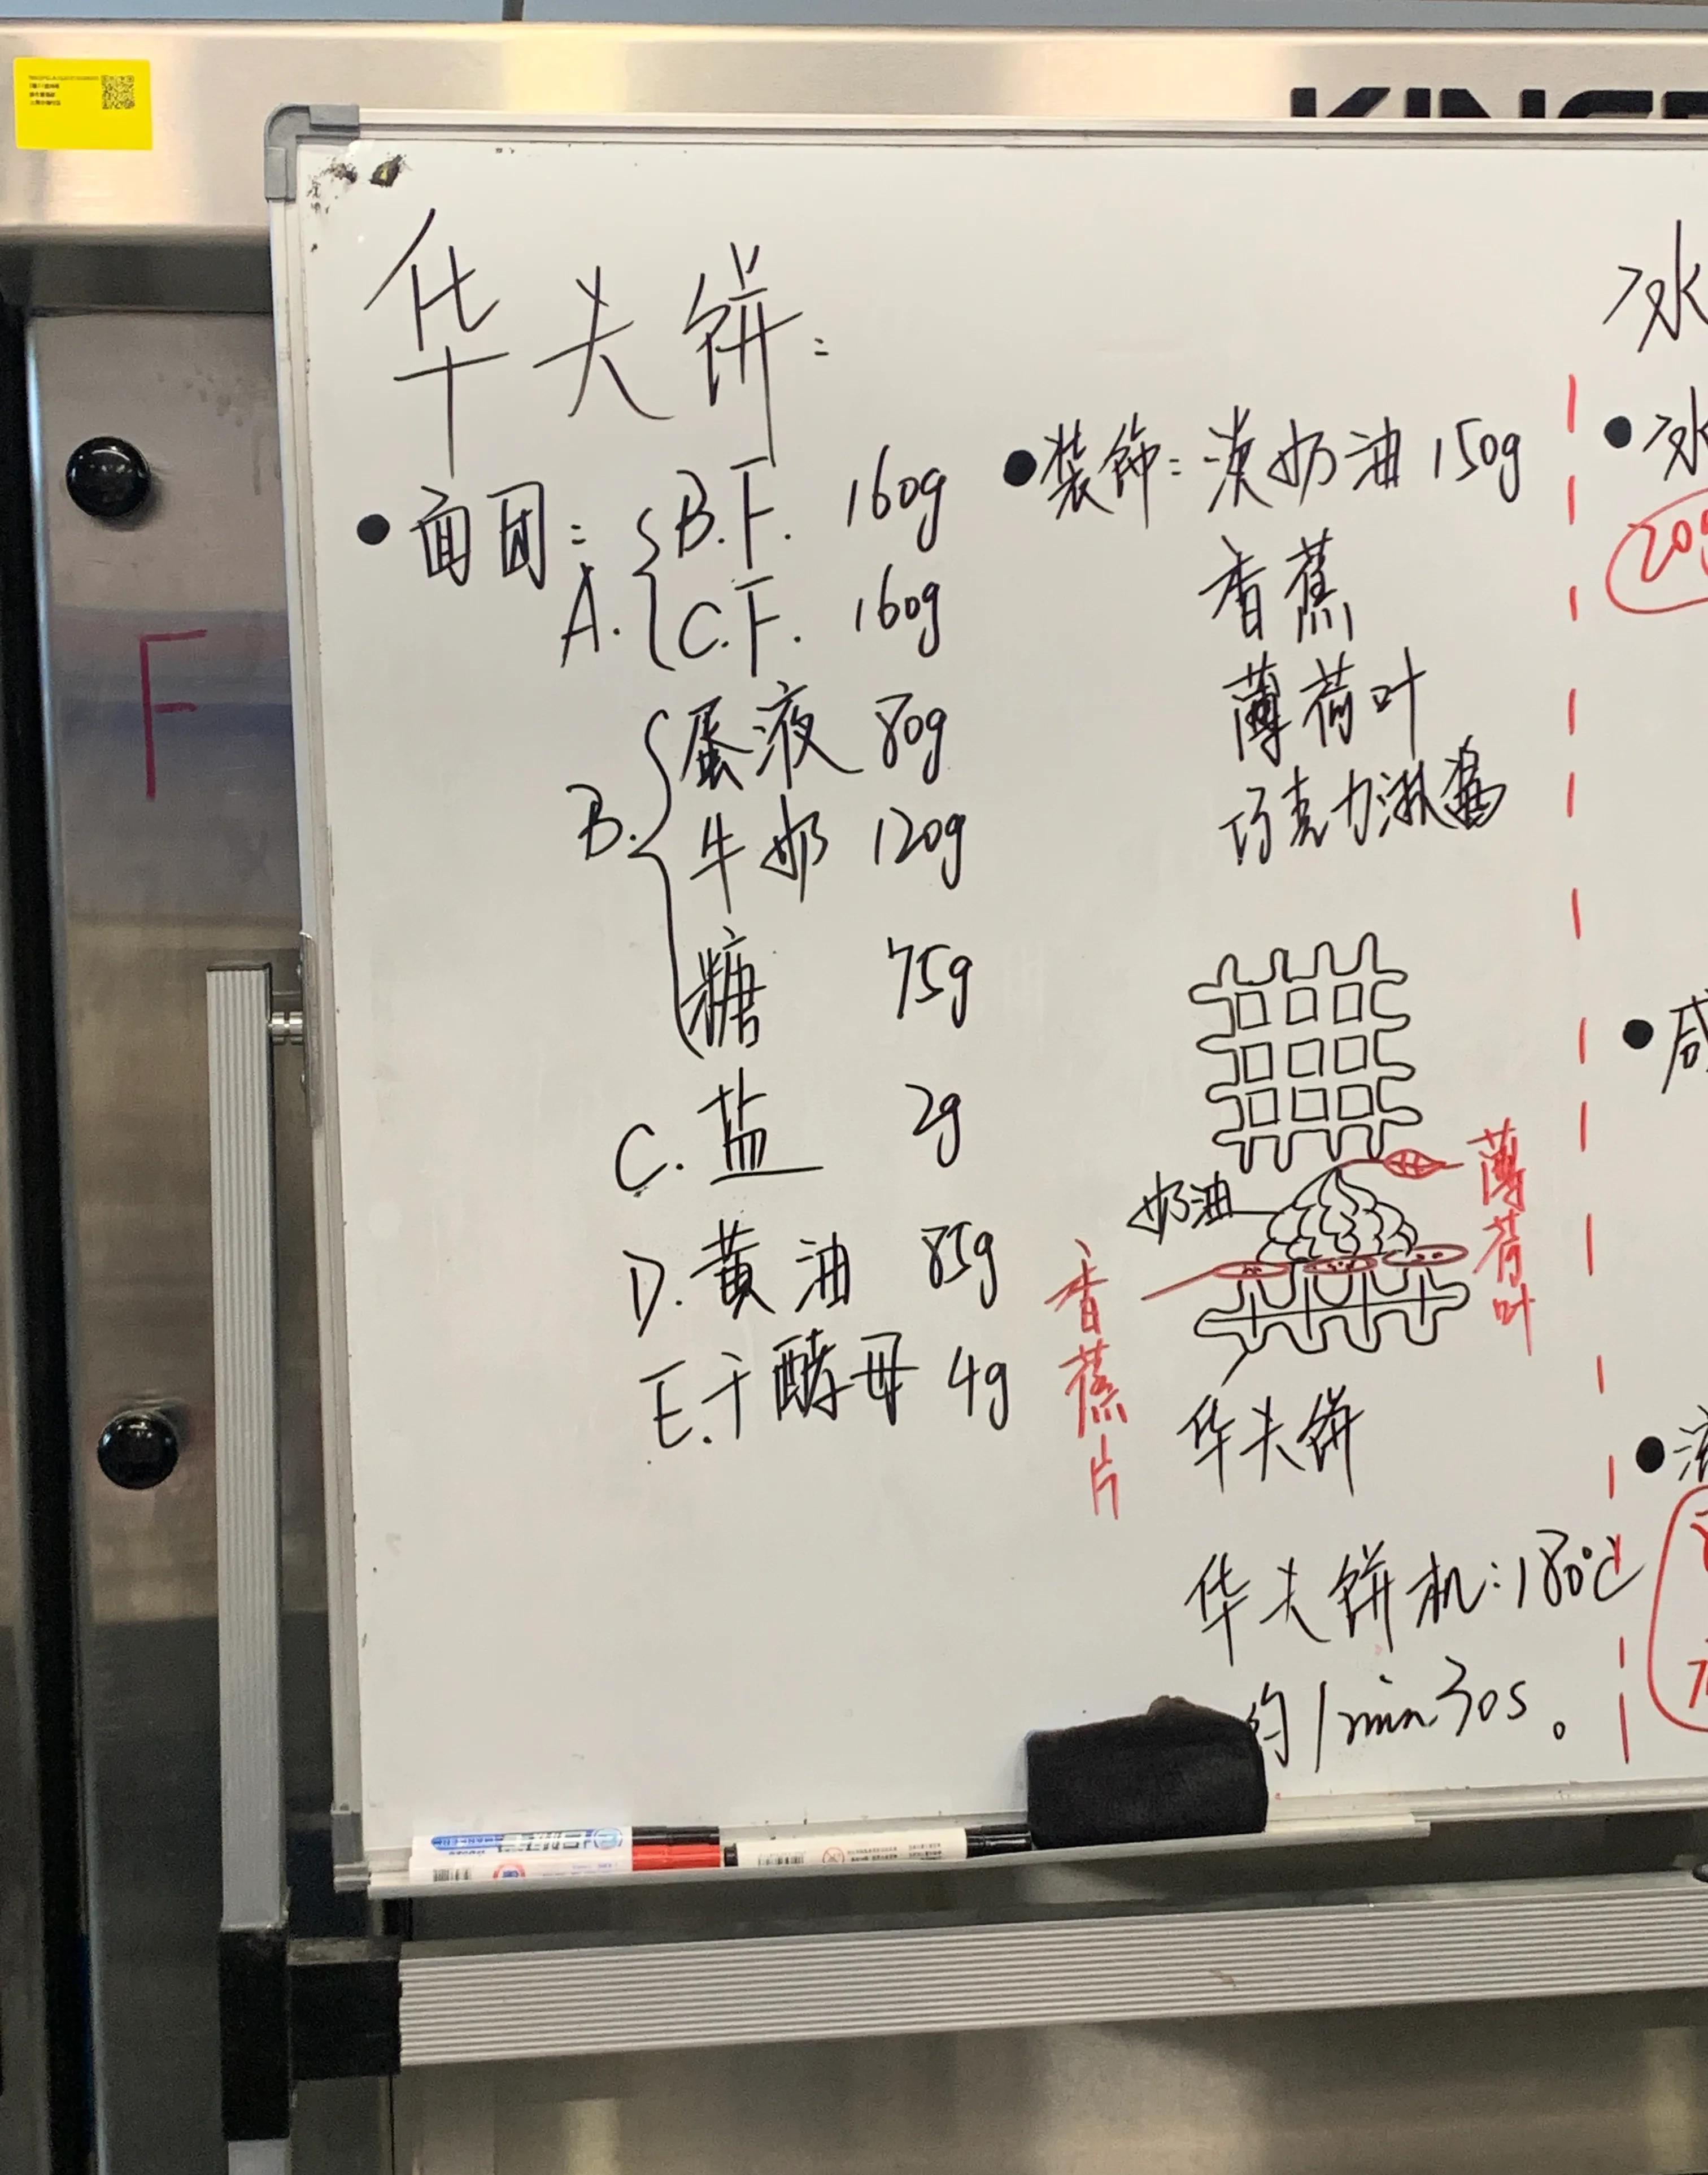 KINGR
F
华夫饼:
• 面团: A. B.F. 160g
C.F. 160g
B. 蛋液 80g
牛奶 120g
糖 75g
C. 盐 2g
D. 黄油 85g
E. 干酵母 4g
• 装饰: 淡奶油 150g
香蕉
薄荷叶
巧克力淋酱
奶油
薄荷叶
香蕉片
华夫饼
华夫饼机: 180℃
约1min30s。
冰
• 冰
• 咸